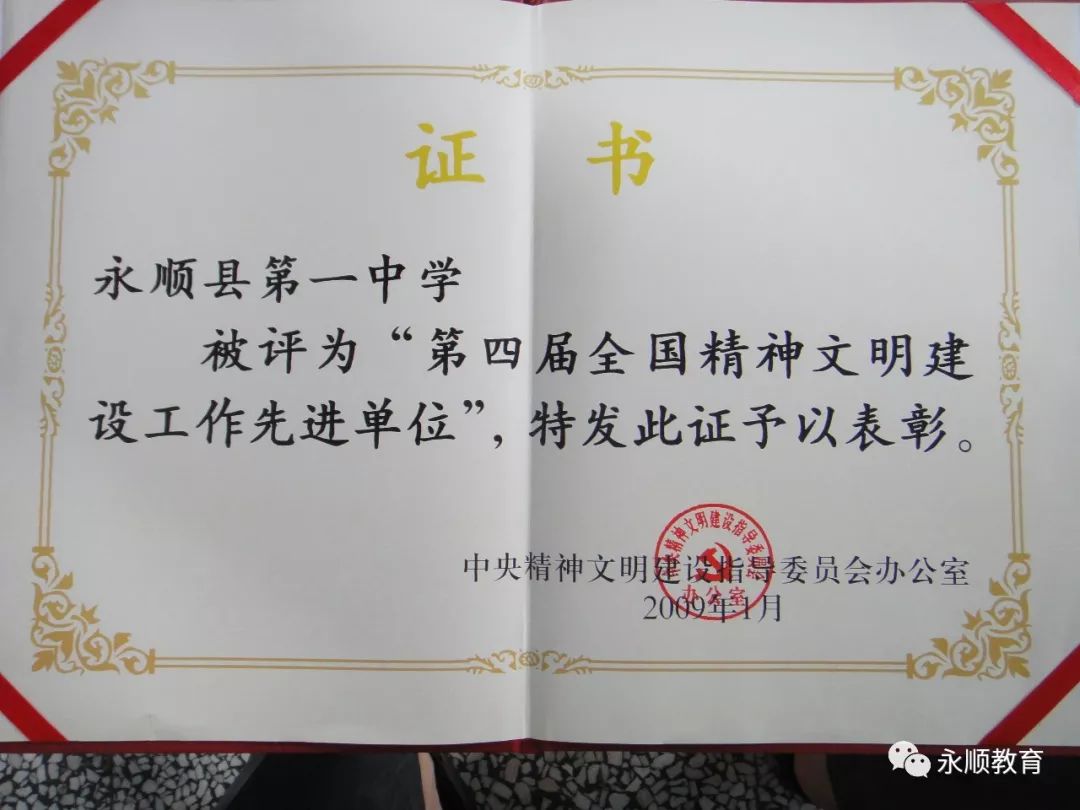 证 书
永顺县第一中学
被评为“第四届全国精神文明建
设工作先进单位”，特发此证予以表彰。
中央精神文明建设指导委员会办公室
2009年1月
办公室
永顺教育